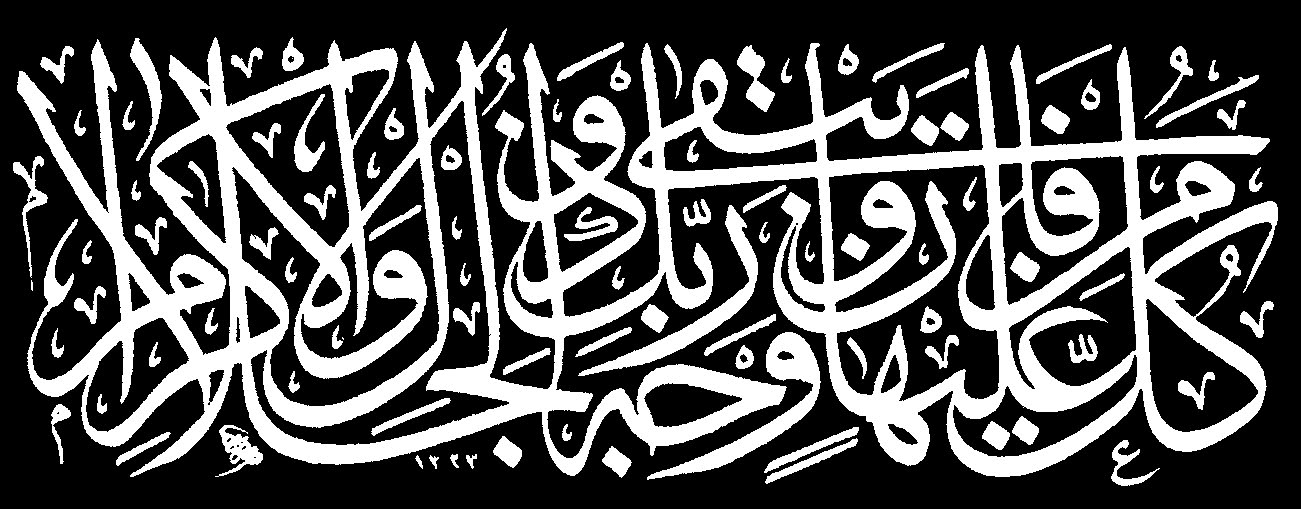 كُلُّ مَنْ عَلَيْهَا فَانٍ وَيَبْقَىٰ وَجْهُ رَبِّكَ ذُو الْجَلَالِ وَالْإِكْرَامِ
١٣٣٣